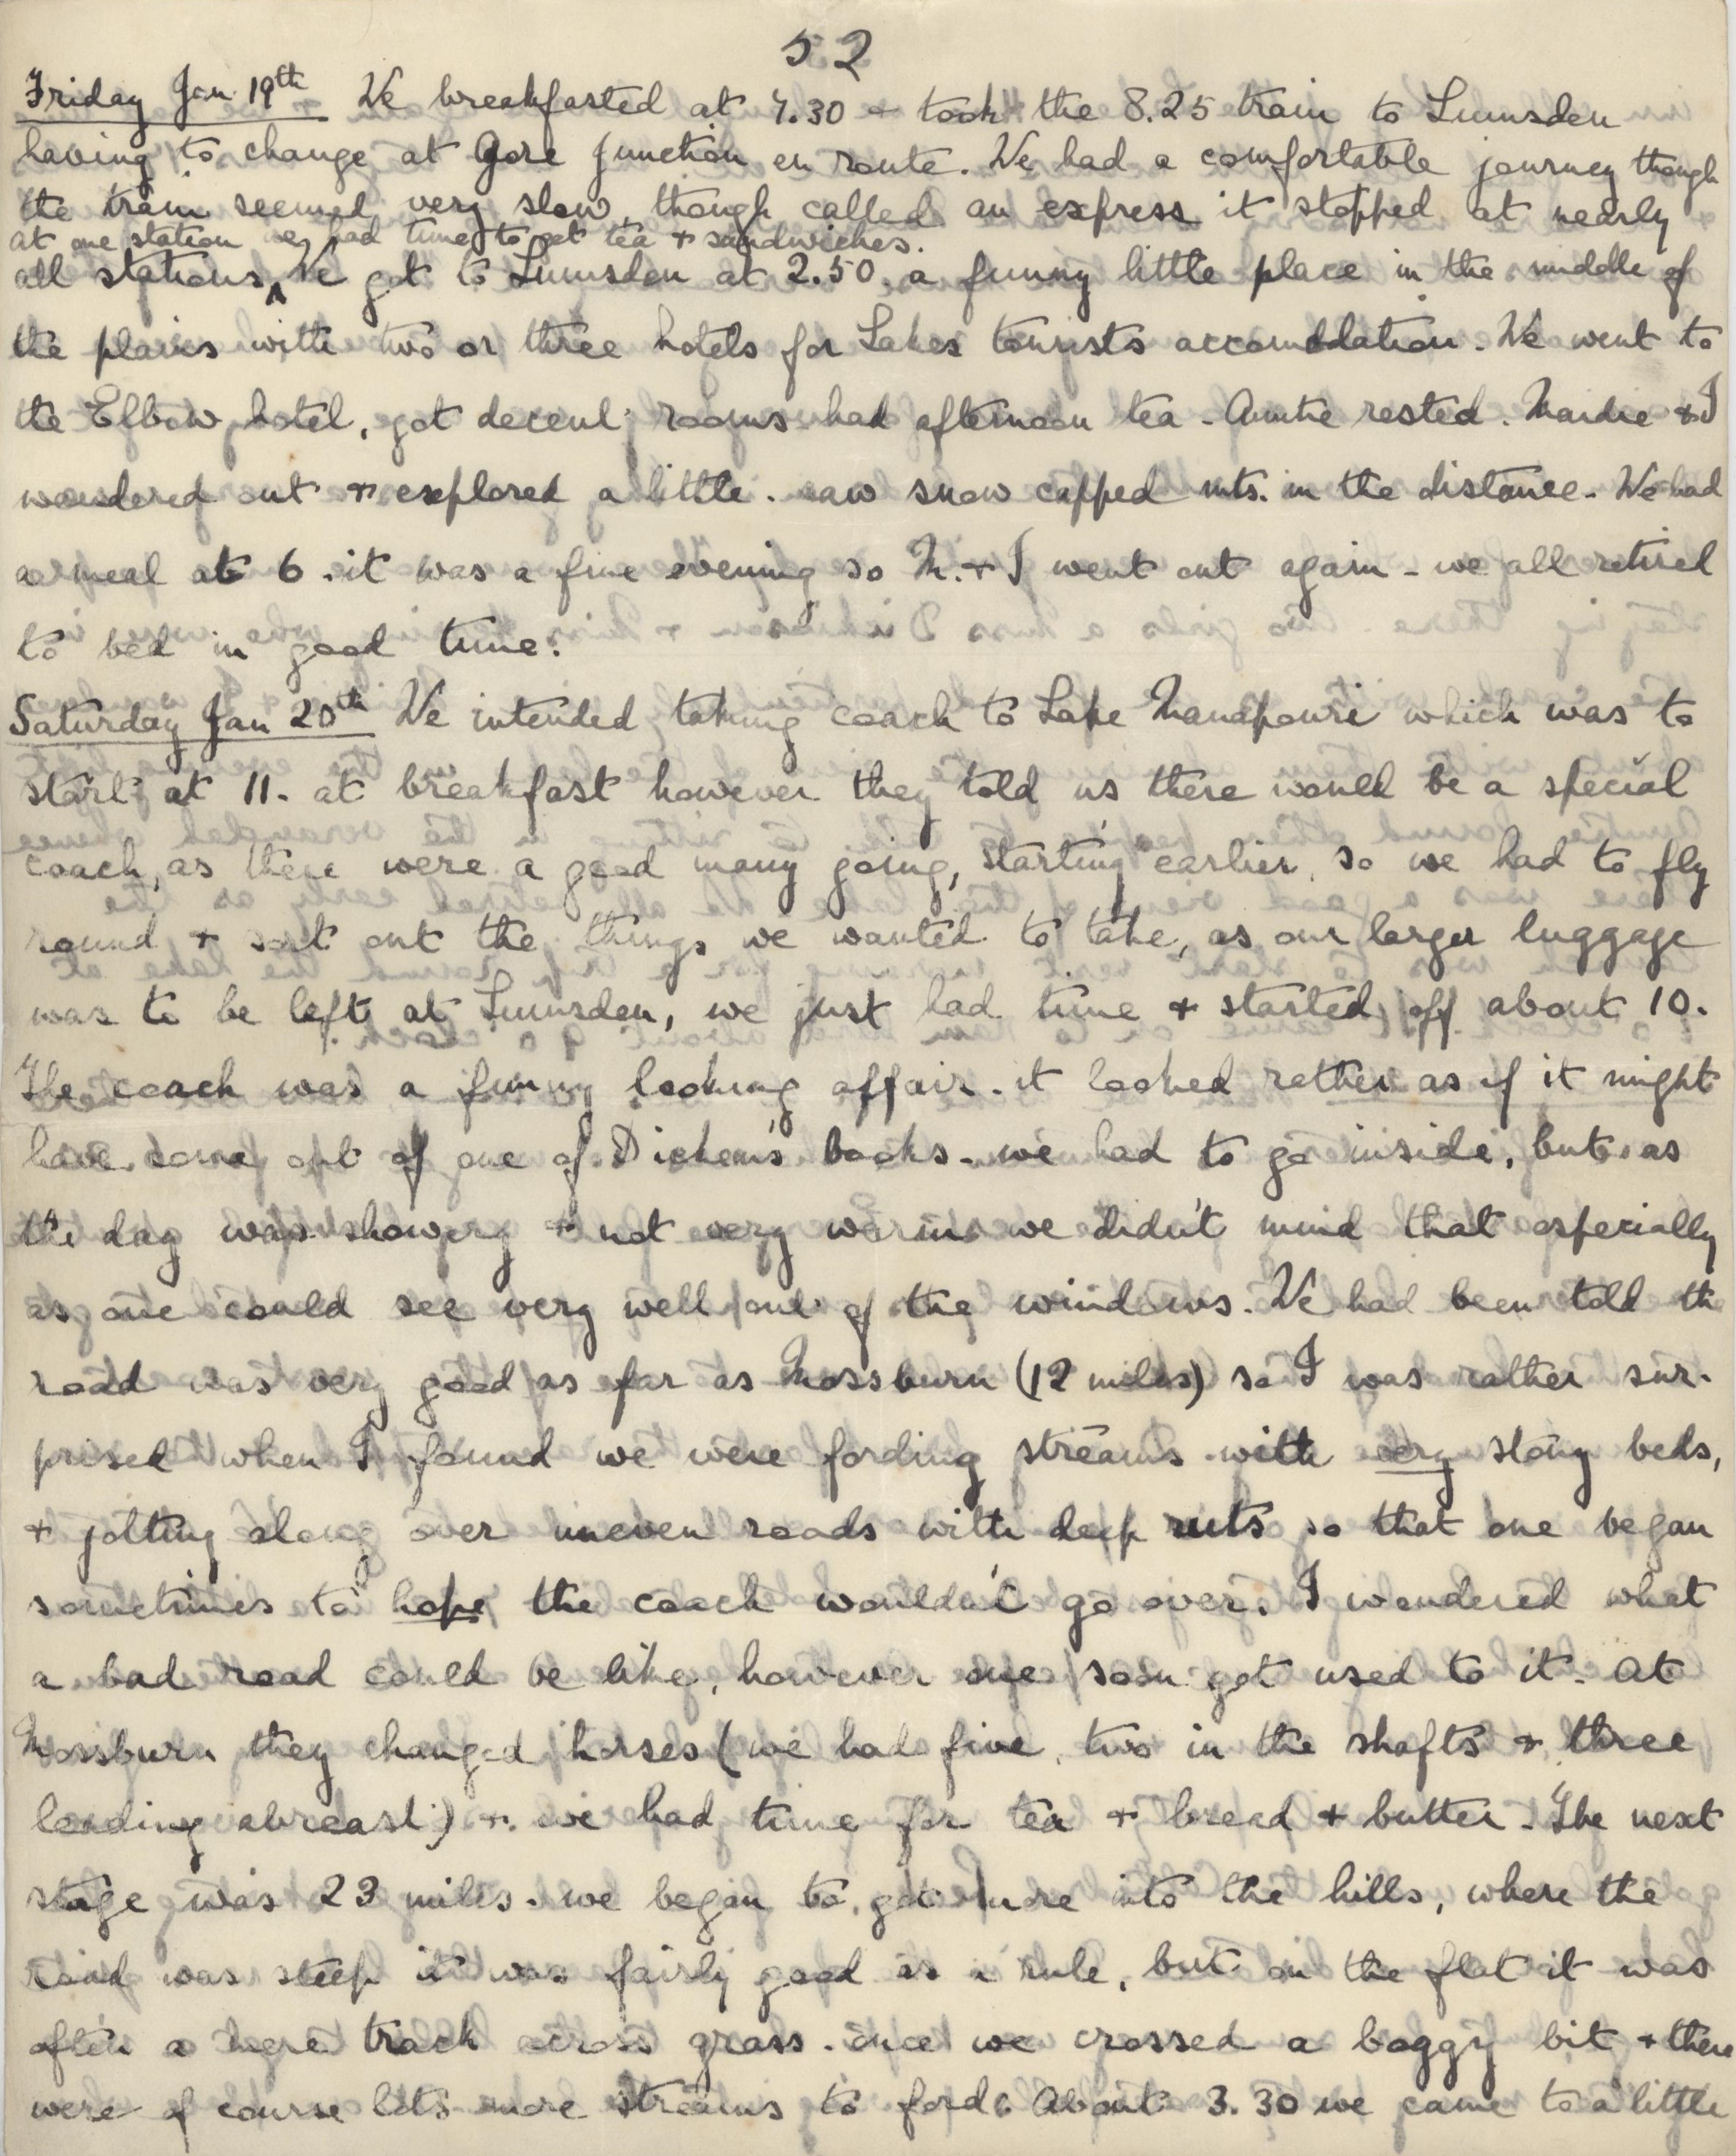 52
Friday Jan 19th We breakfasted at 7.30 + took the 8.25 train to Lumsden
having to change at Gore Junction en route. We had a comfortable journey though
the train seemed very slow, though called an express it stopped at nearly
at one station we had time to get tea + sandwiches.
all stations. We got to Lumsden at 2.50. a funny little place in the middle of
the plains with two or three hotels for Lakes tourists accomodation. We went to
the Elbow hotel, got decent rooms had afternoon tea - Auntie rested. Mardie + I
wandered out + explored a little. saw snow capped mts. in the distance - We had
a meal at 6. it was a fine evening so M. + I went out again - we all retired
to bed in good time.
Saturday Jan 20th We intended taking coach to Lake Manapouri which was to
start at 11. at breakfast however they told us there would be a special
coach, as there were a good many going, starting earlier, so we had to fly
round + sort out the things we wanted to take, as our larger luggage
was to be left at Lumsden, we just had time + started off about 10.
The coach was a funny looking affair. it looked rather as if it might
have come out of one of Dicken's books. we had to go inside, but as
the day was showery + not very warm we didn't mind that especially
as one could see very well out of the windows. We had been told the
road was very good as far as Mossburn (12 miles) so I was rather sur-
prised when I found we were fording streams with very stony beds,
+ jolting along over uneven roads with deep ruts so that one began
sometimes to hope the coach wouldn't go over. I wondered what
a bad road could be like, however one soon got used to it. At
Mossburn they changed horses (we had five, two in the shafts + three
leading abreast) + we had time for tea + bread + butter. The next
stage was 23 miles. we began to get more into the hills, where the
road was steep it was fairly good as a rule, but on the flat it was
often a mere track across grass. once we crossed a boggy bit + there
were of course lots more streams to ford. About 3.30 we came to a little